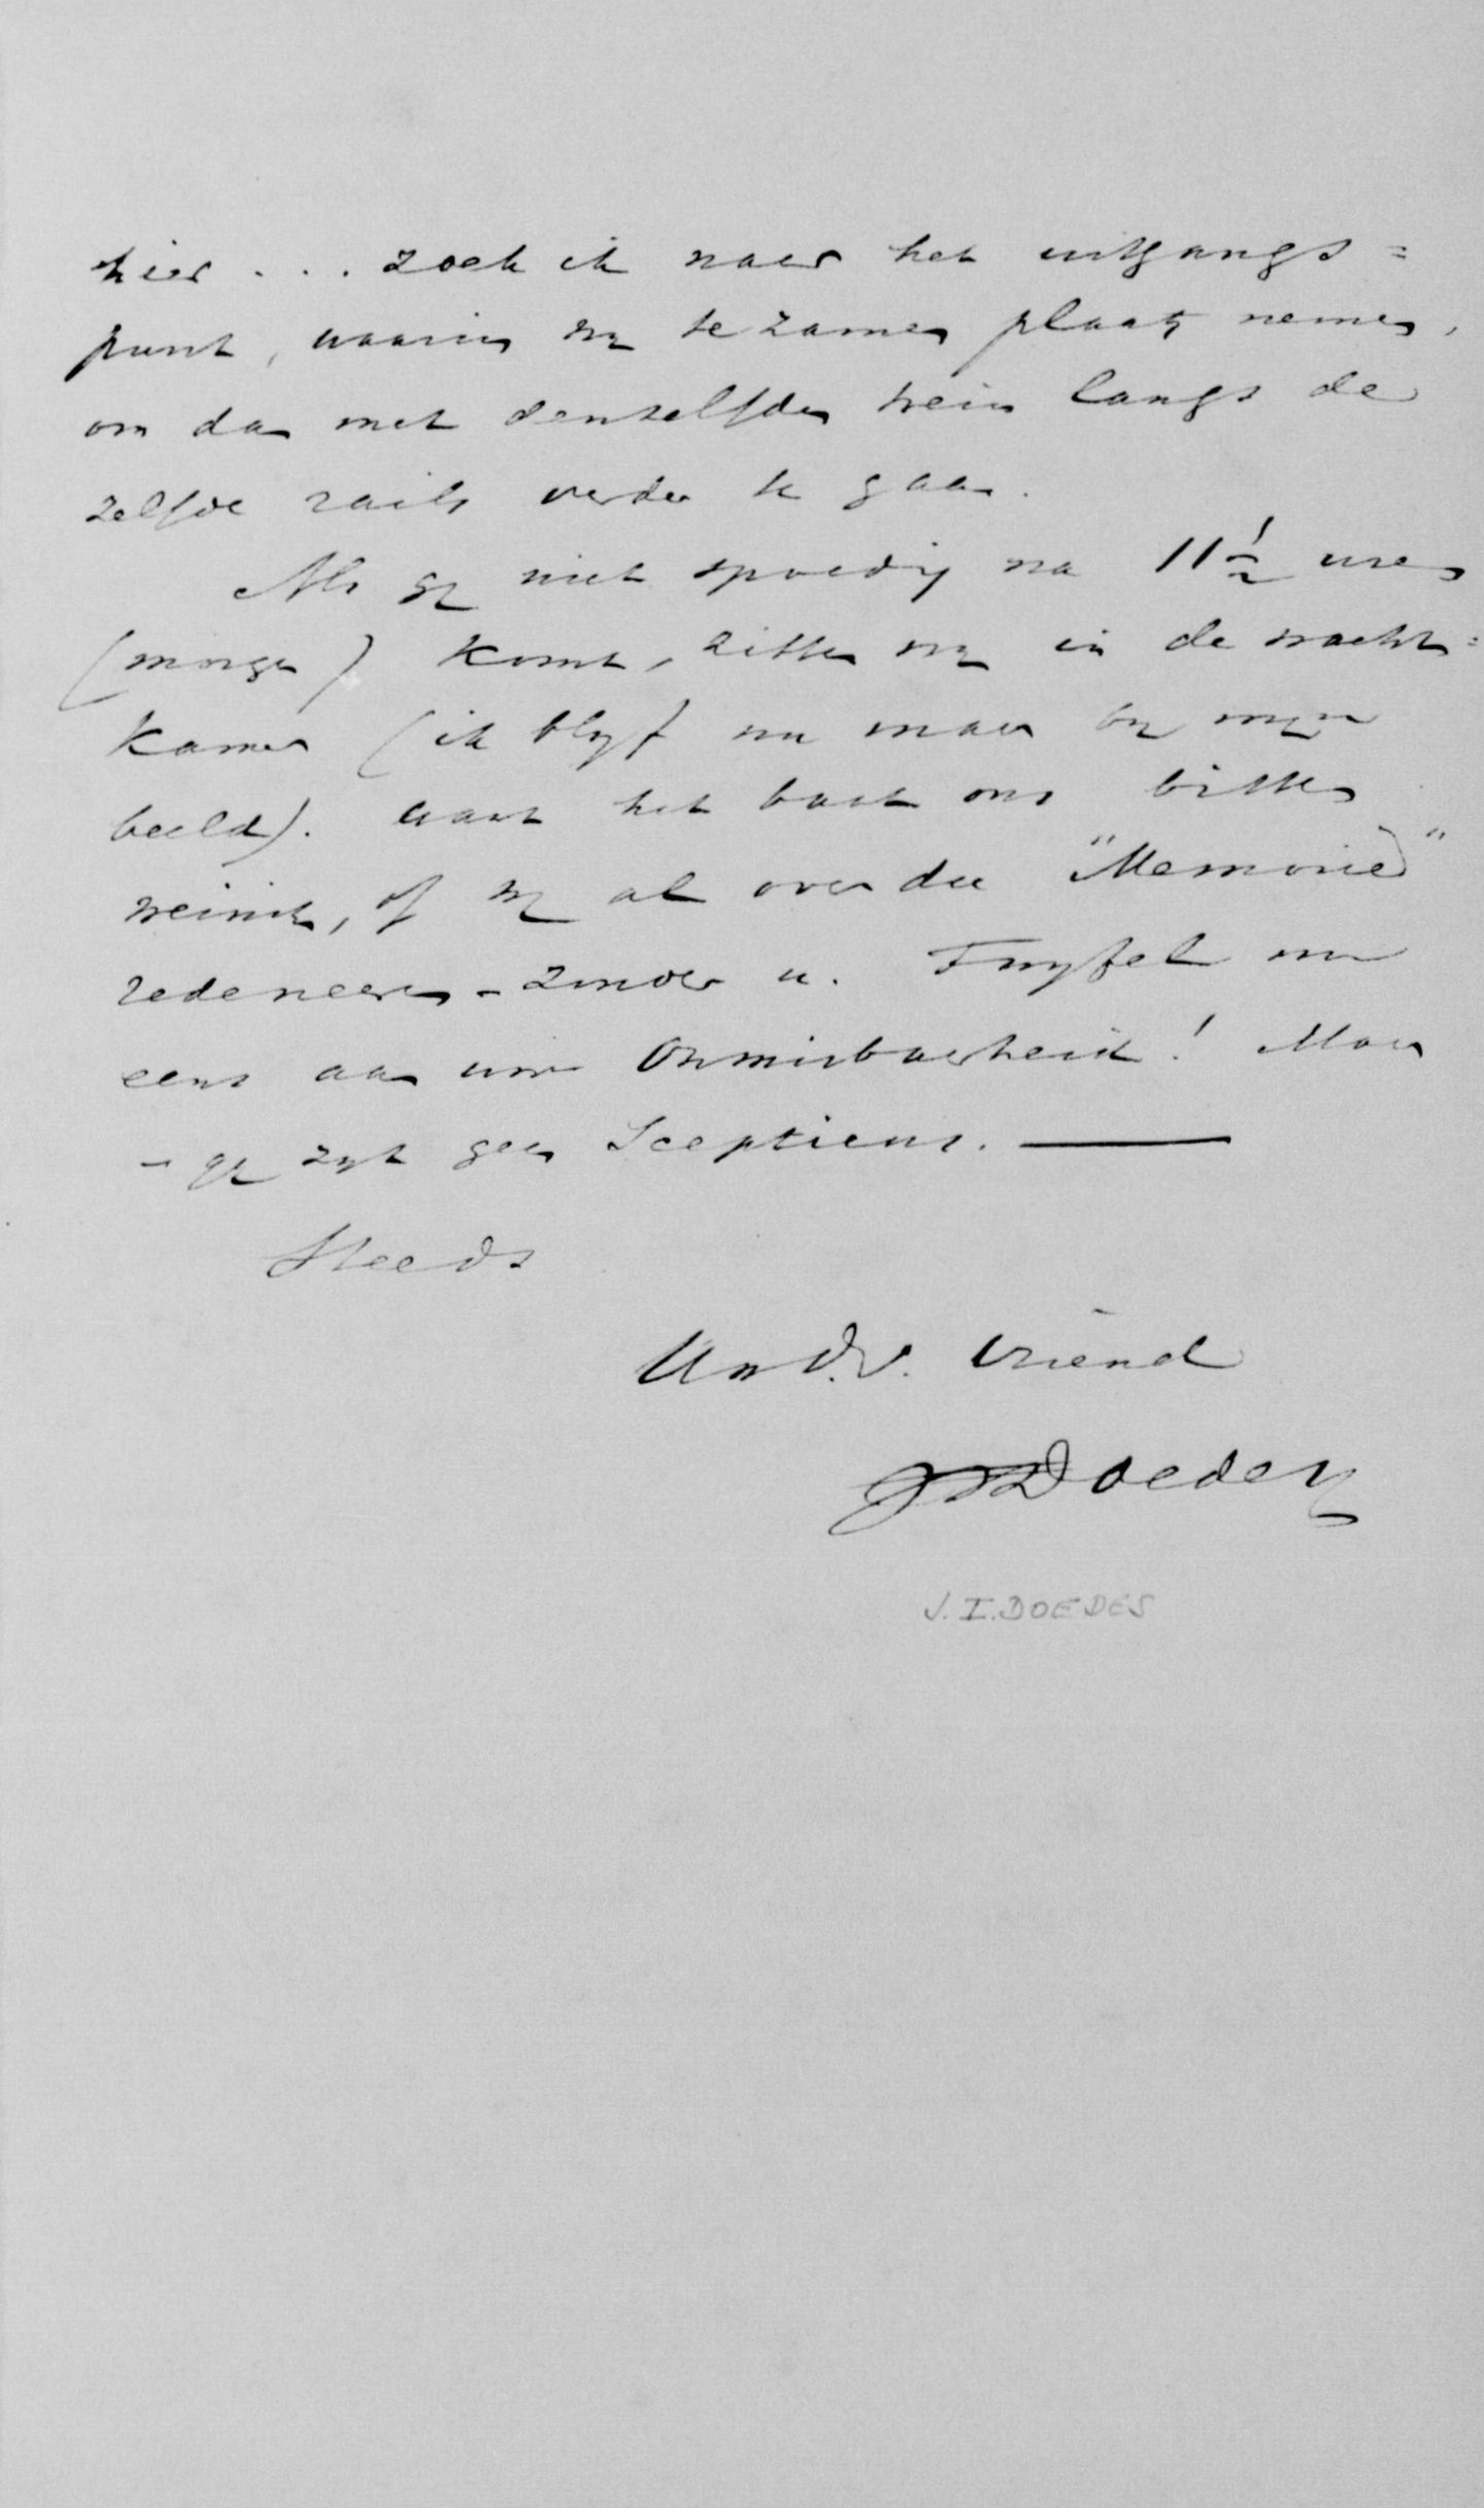 hier . . . zoek ik naar het uitgangs=
punt, waarin wy te zamen plaats nemen,
om dan met denzelfden trein langs de
zelfde rails verder te gaan.
Als gy niet spoedig na 11 1/2 uren
(morgen) komt, zitten wy in de wacht=
kamer (ik blyf nu maar by myn
beeld). want het baat ons bitter
weinig, of wy al over die "Memorie"
redeneeren - zonder u. Twyfel nu
eens aan uwe onmisbaarheid! Maar
- gy zyt geen Scepticus. —
Steeds
Uw d.v. Vriend
JIDoedes
J. I. DOEDES